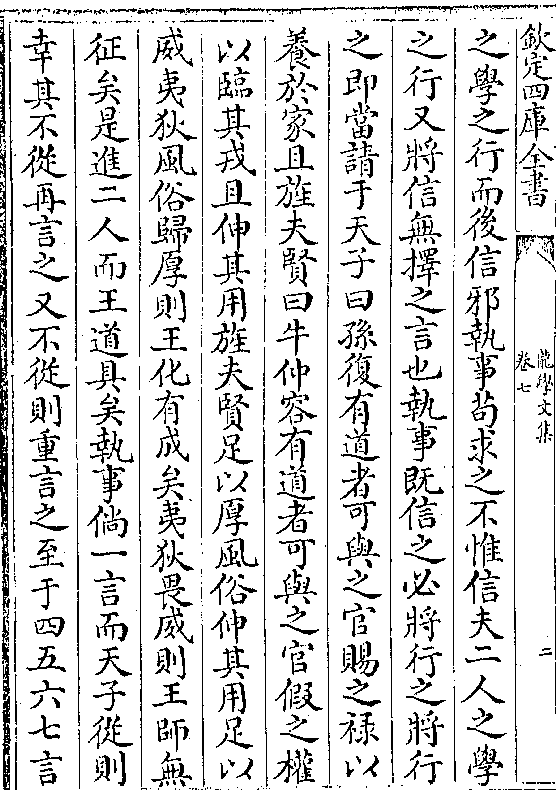 欽定四庫全書
龍學文集
卷七
二
之學之行而後信邪執事茍求之不惟信夫二人之學
之行又將信無擇之言也執事既信之必將行之將行
之即當請于天子曰孫復有道者可與之官賜之禄以
養於家且旌夫賢曰牛仲容有道者可與之官假之權
以臨其戎且伸其用旌夫賢足以厚風俗伸其用足以
威夷狄風俗歸厚則王化有成矣夷狄畏威則王師無
征矣是進二人而王道具矣執事倘一言而天子從則
幸其不從再言之又不從則重言之至于四五六七言